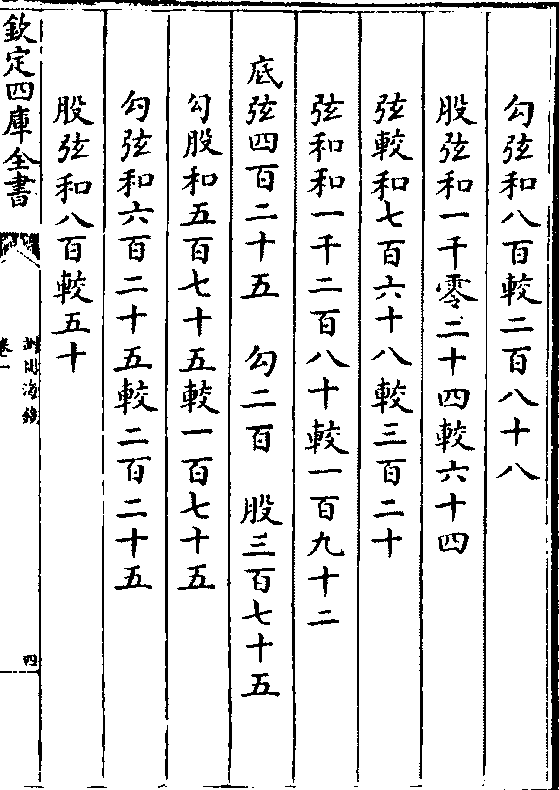 勾弦和八百較二百八十八
股弦和一千零二十四較六十四
弦較和七百六十八較三百二十
弦和和一千二百八十較一百九十二
底弦四百二十五　勾二百　股三百七十五
勾股和五百七十五較一百七十五
勾弦和六百二十五較二百二十五
股弦和八百較五十
欽定四庫全書
測圓海鏡
卷一
四